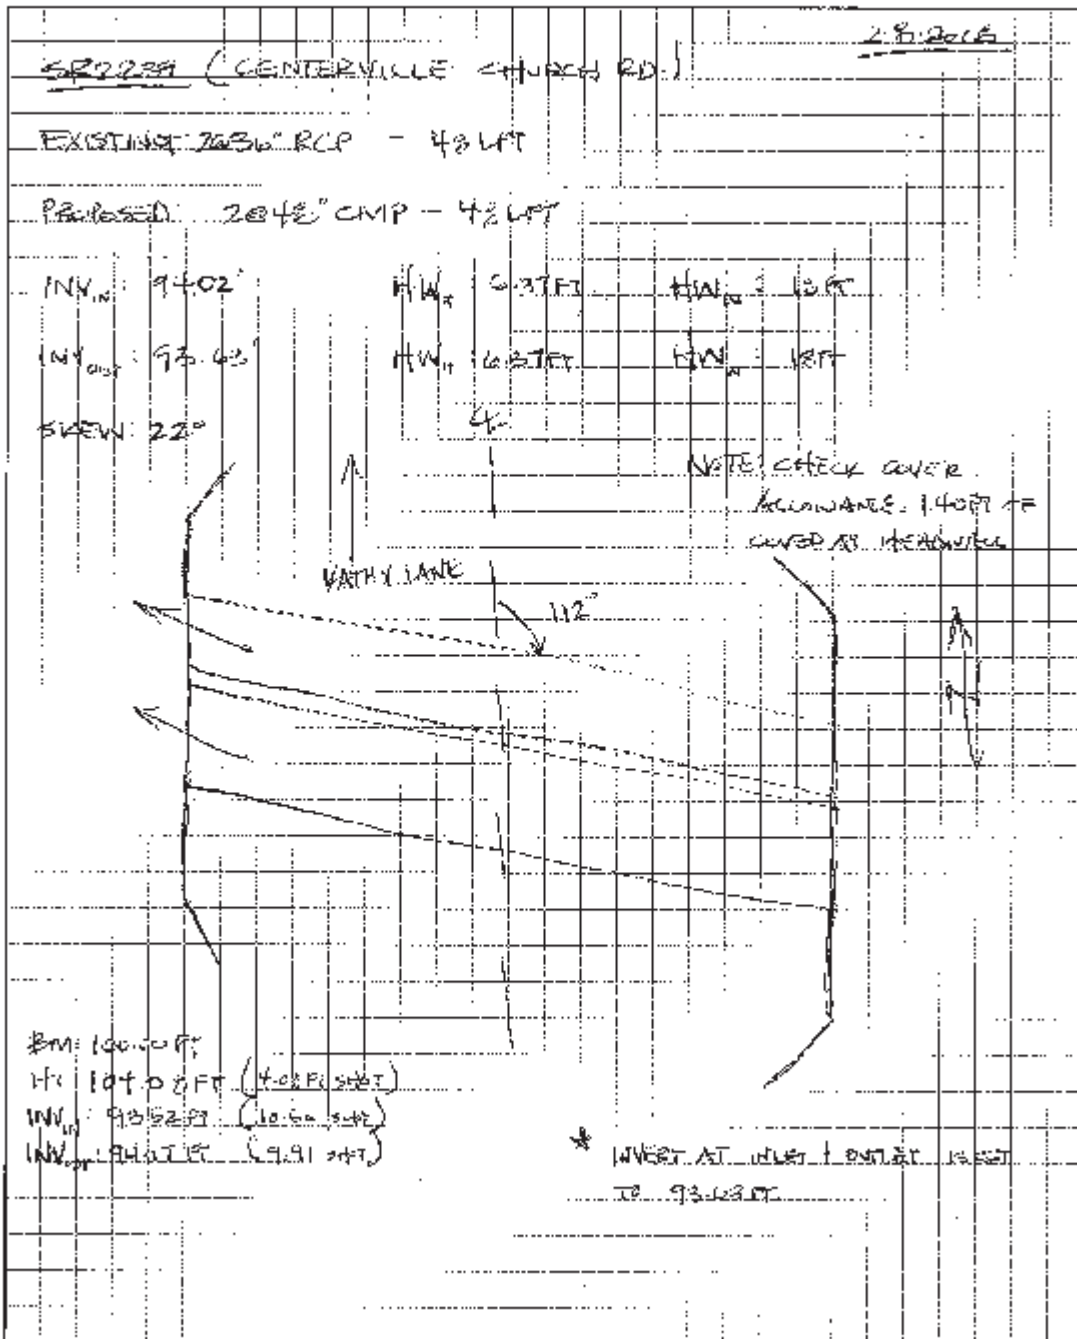 SR2239 (CENTERVILLE CHURCH RD.)
EXISTING: 2@36" RCP - 48 LFT
PROPOSED: 2@48" CMP - 48 LFT
INV IN: 94.02' HW : 6.37FT HW : 18FT
INV OUT: 93.63' HW : 6.37FT HW : 18FT
SKEW: 22°
NOTE: CHECK COVER
ALLOWANCE. 1.40FT OF
COVER AT HEADWALL
KATHY LANE
112°
BM: 100.00 FT
HI: 104.08 FT (4.08 FT SHOT)
INV IN: 93.52 FT (10.56 SHOT)
INV OUT: 94.17 FT (9.91 SHOT)
* INVERT AT INLET + OUTLET IS SET
TO 93.63 FT